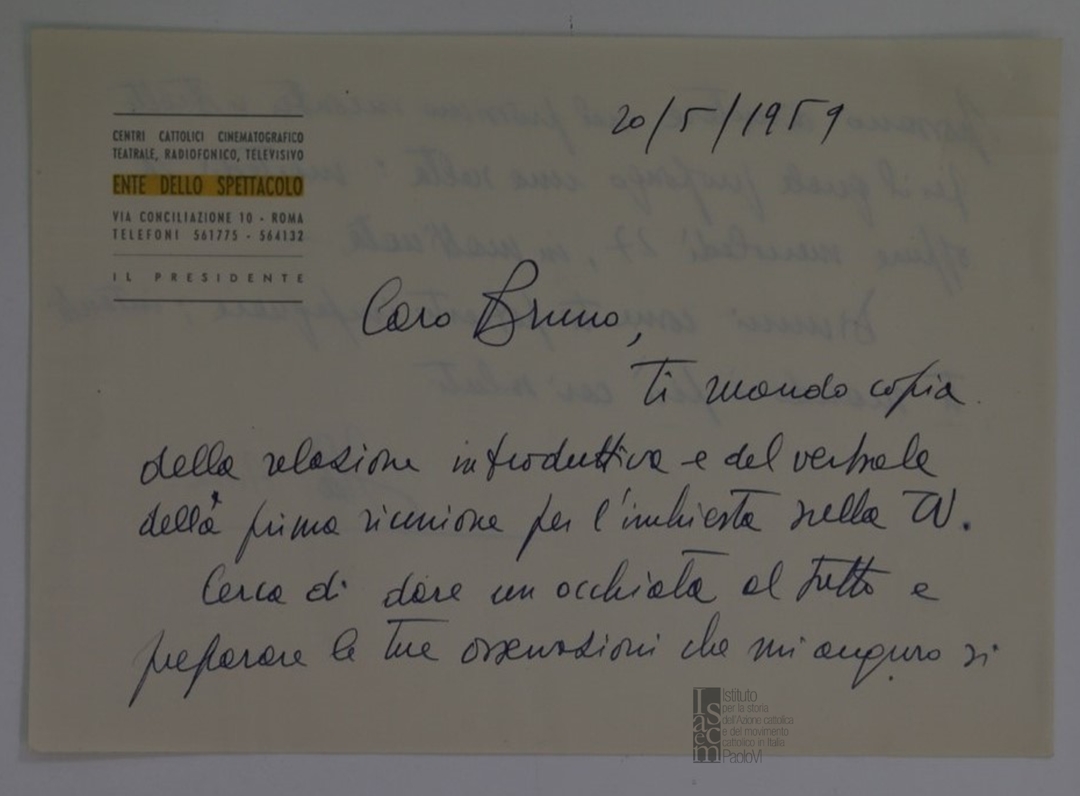 CENTRI CATTOLICI CINEMATOGRAFICO
TEATRALE, RADIOFONICO, TELEVISIVO
ENTE DELLO SPETTACOLO
VIA CONCILIAZIONE 10 - ROMA
TELEFONI 561775 - 564132
IL PRESIDENTE
20/5/1959
Caro Bruno,
Ti mando copia
della relazione introduttiva e del verbale
della prima riunione per l'inchiesta sulla TV.
Cerca di dare un occhiata al tutto e
preparare le tue osservazioni che mi auguro si
Isacem
Istituto
per la storia
dell'Azione cattolica
e del movimento
cattolico in Italia
PaoloVI